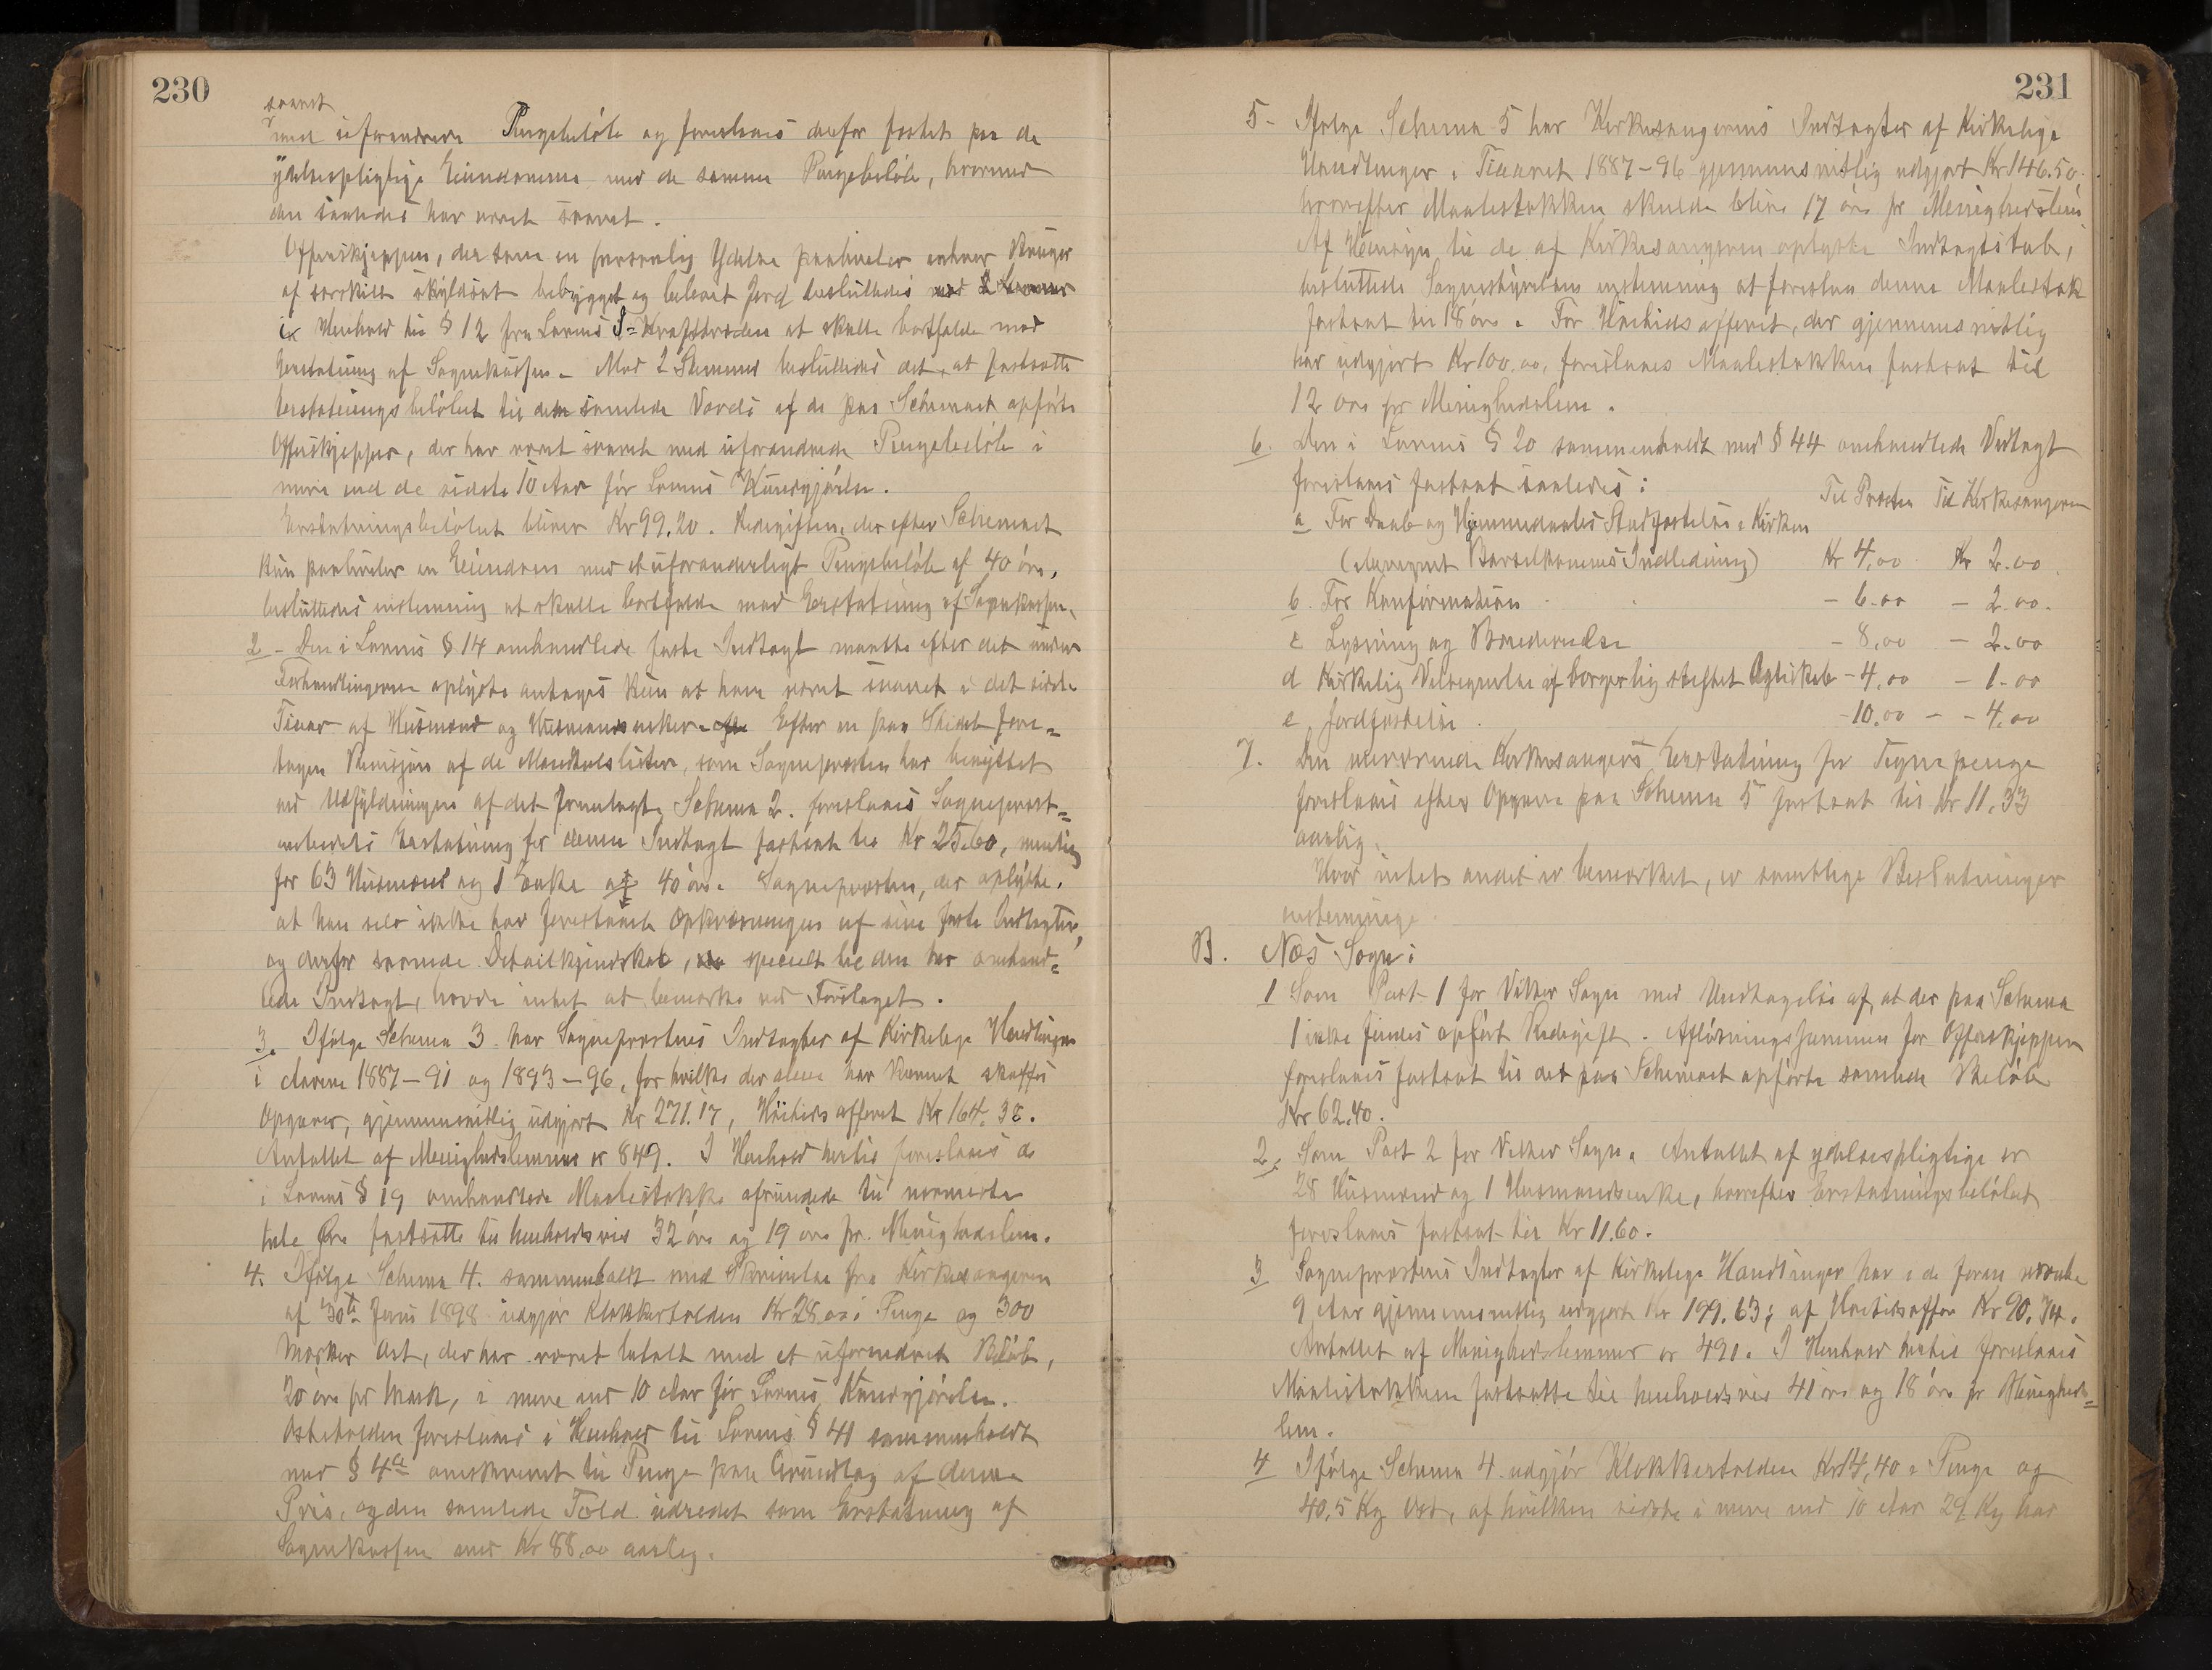 230
svaret
med uforandrede Pengebeløb og foreslaaes derfor fastet paa de
ydelsespligtige Eiendomme med de samme Pengebeløb, hvormed
den saaledes har været svaret.
Offerskjeppen, der som en personlig Ydelse paahviler enhver Bruger
af særskilt skyldsat bebygget og beboet Jord besluttedes
i Henhold til § 12 fra Lovens I-Krafttræden at skulle bortfalde mod
Erstatning af Sognekassen. Med 2 Stemmer besluttedes det, at fastsætte
Erstatningsbeløbet til den samlede Værdi af de paa Schemaet opførte
Offerskjepper, der har været svaret med uforandrede Pengebeløb i
mere end de sidste 10 Aar før Lovens Kundgjørelse.
Erstatningsbeløbet bliver Kr 99.20. Redegiften, der efter Schemaet
kun paahviler en Eiendom med et uforanderligt Pengebeløb af 40 øre,
besluttedes enstemmig at skulle bortfalde mod Erstatning af Sognekassen.
2 - Den i Lovens § 14 omhandlede faste Indtægt maatte efter det under
Forhandlingerne oplyste antages kun at have været svaret i det sidste
Tiaar af Husmænd og Husmandsenker. Efter en paa Stedet fore=
tagen Revisjon af de Mandtalslister, som Sognepresten har benyttet
ved Udfyldningen af det fremlagte Schema 2. foreslaaes Sogneprest=
embedets Erstatning for denne Indtægt fastsat til Kr 25.60, nemlig
for 63 Husmænd og 1 Enke af 40 øre. Sognepresten, der oplyste,
at han selv ikke har forestaaet Opkrævningen af sine faste Indtægter,
og derfor savnede Detailkjendskab, specielt til den her omhand=
lede Indtægt, havde intet at bemærke ved Forslaget.
3. Ifølge Schema 3. har Sogneprestens Indtægter af Kirkelige Handlinger
i Aarene 1887-91 og 1893-96, for hvilke der alene har kunnet skaffes
Opgaver, gjennemsnitlig udgjort Kr 271.17, Høitidsofferet Kr 164.38.
Antallet af Menighedslemmer er 849. I Henhold hertil foreslaaes de
i Lovens § 19 omhandlede Maalestokke afrundede til nærmeste
hele Øre fastsatte til henholdsvis 32 øre og 19 øre pr. Menighedslem.
4. Ifølge Schema 4. sammenholdt med Skrivelse fra Kirkesangeren
af 30te Juni 1898 udgjør Klokkertolden Kr 28.00 i Penge og 300
Marker Ost, der har været betalt med et uforandret Beløb,
20 øre pr Mark, i mere end 10 Aar før Lovens Kundgjørelse.
Ostetolden foreslaaes i Henhold til Lovens § 41 sammenholdt
med § 4a omskrevet til Penge paa Grundlag af denne
Pris, og den samlede Told udredet som Erstatning af
Sognekassen med Kr 88.00 aarlig.
231
5- Ifølge Schema 5 har Kirkesangerens Indtægter af Kirkelige
Handlinger i Tiaaret 1887-96 gjennemsnitlig udgjort Kr 146.50.
hvorefter Maalestokken skulde blive 17 øre pr Menighedslem
Af Hensyn til de af Kirkesangeren oplyste Indtægtstab,
besluttede Sognestyrelsen enstemmig at foreslaa denne Maalestok
fastsat til 18 øre. For Høitidsofferet, der gjennemsnitlig
har udgjort Kr 100.00, foreslaaes Maalestokken fastsat til
12 øre pr Menighedslem.
6. Den i Lovens § 20 sammenholdt med § 44 omhandlede Indtægt
foreslaaes fastsat saaledes:
Til Presten Til Kirkesangeren
a For Daab og Hjemmedaabs Stadfæstelse i Kirken
(iberegnet Barselkonens Indledning) Kr 4,00 Kr 2.00.
b. For Konfirmation - 6.00 - 2.00.
c Lysning og Brudevielse - 8,00 - 2.00
d Kirkelig Velsignelse af borgerlig stiftet Ægteskab - 4,00 - 1.00
e. Jordfæstelse - 10.00 - - 4.00
7. Den nuværende Kirkesangers Erstatning for Tegnepenge
foreslaaes efter Opgave paa Schema 5 fastsat til Kr 11.33
aarlig.
Hvor intet andet er bemærket, er samtlige Beslutninger
enstemmige.
B. Næs Sogn:
1 Som Post 1 for Vikør Sogn med Undtagelse af, at der paa Schema
1 ikke findes opført Redegift. Afløsningssummen for Offerskjeppen
foreslaaes fastsat til det paa Schemaet opførte samlede Beløb
Kr 62.40.
2. Som Post 2 for Vikør Sogn. Antallet af ydelsespligtige er
28 Husmænd og 1 Husmandsenke, hvorefter Erstatningsbeløbet
foreslaaes fastsat til Kr 11.60.
3 Sogneprestens Indtægter af Kirkelige Handlinger har i de foran nævnte
9 Aar gjennemsnitlig udgjort Kr 199.63; af Høitidsoffer Kr 90.74.
Antallet af Menighedslemmer er 491. I Henhold hertil foreslaaes
Maalestokken fastsatte til henholdsvis 41 øre og 18 øre pr Menigheds=
lem.
4 Ifølge Schema 4. udgjør Klokkertolden Kr 14,40 i Penge og
40,5 Kg Ost, af hvilken sidste i mere end 10 Aar 29 Kg har